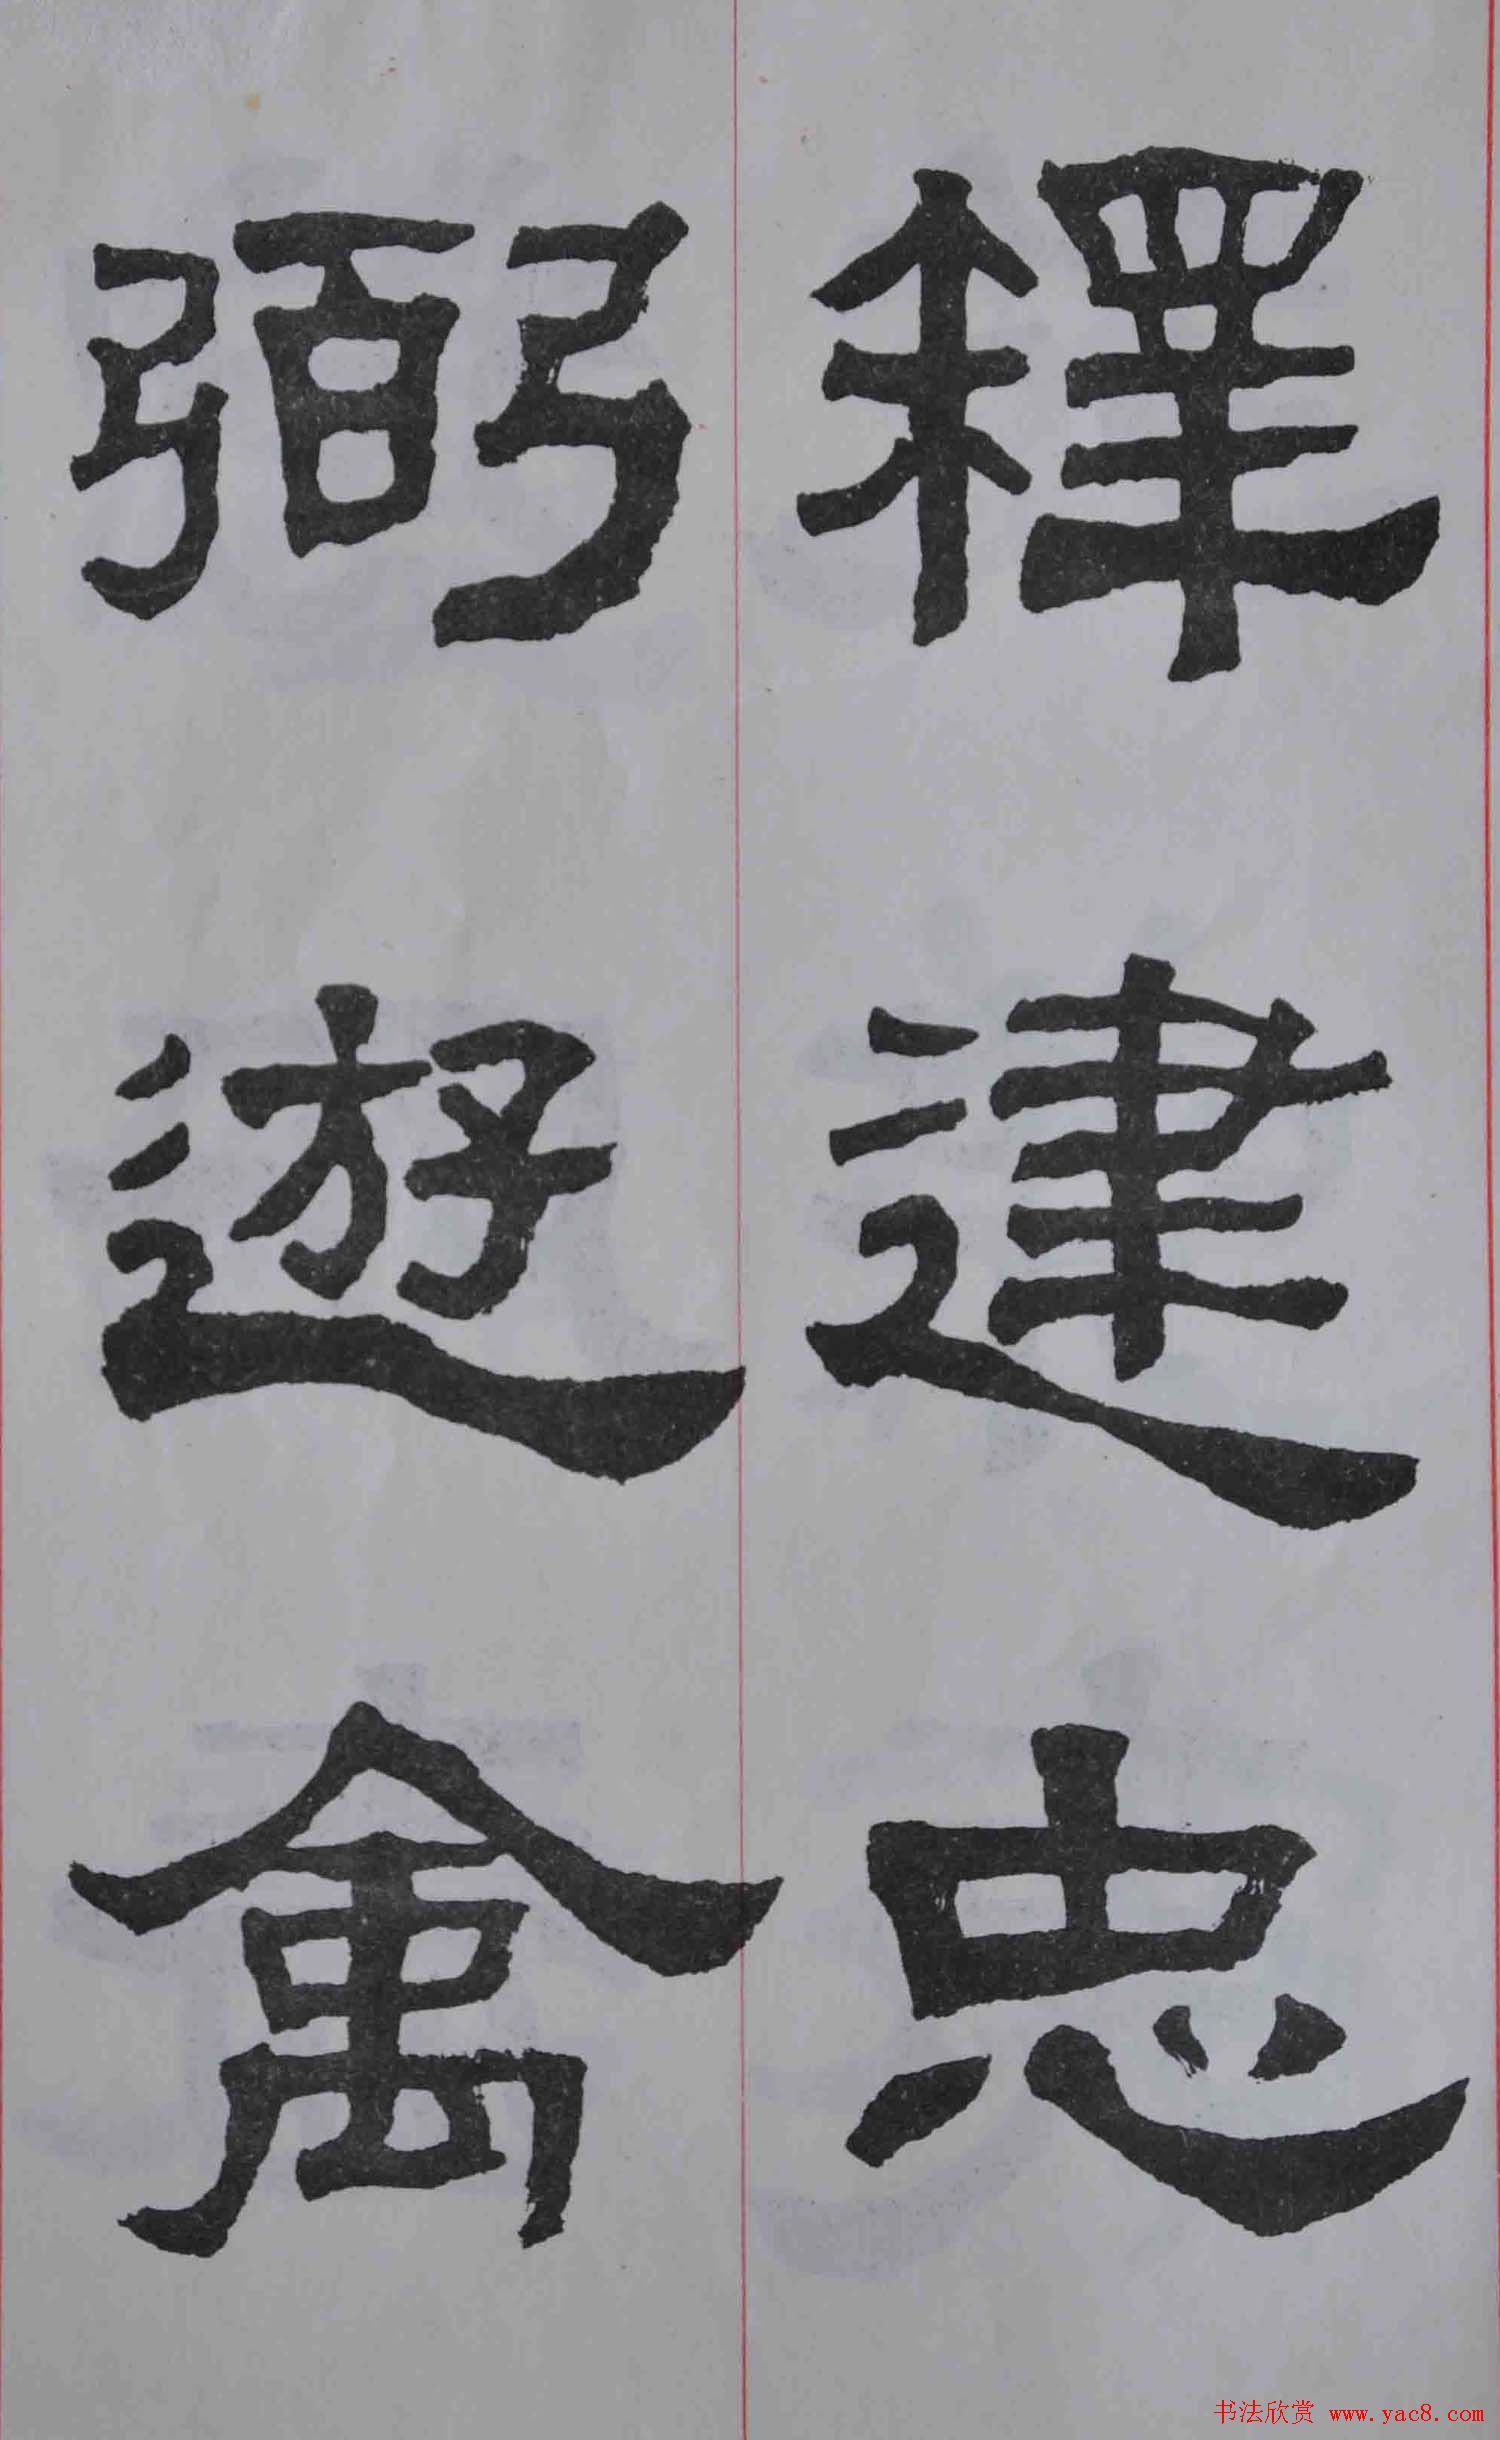 釋建忠
弼遊禽
书法欣赏 www.yac8.com